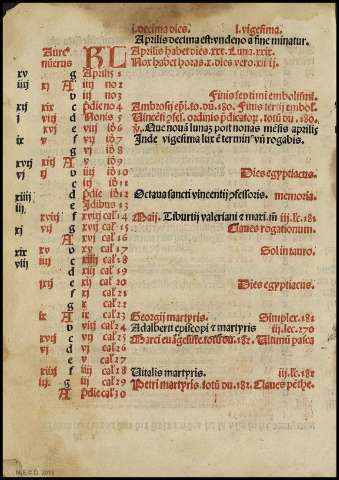 i. decima dies. i. vigesima.
Aprilis decima est undeno a fine minatur.
Aure KL Aprilis habet dies. xxx. Luna. xxix.
nuerus Nox habet horas. x. dies vero. xiiij.
xv g Aprilis 1
iiij xj A iiij no 2
iij no 3 Finis septimi embolismi.
xij xix c pdie no 4 Ambrosij epi. to. du. 180. Finis tertij embol.
j viij d Nonis 5 Uincetij pfes. ordinis pdicatorū. totū du. 180.
xvj e viij id 6 Que nova lunas port nonas mesis aprilis
ix v f vij id 7 Inde vigesima lux
g vj id 8
xvij xiij A v id 9
vj ij iiij id 10 Dies egyptiacus
c iij id 11
xiiij x d pdie id 12 Octava sancti vincentij pfessoris. memoria.
iij e Idibus 13
xviij f xviij cal 14 Maij. Tiburtij valeriani & maxi. m iij. lc. 181
xj vij g xvij cal 15 Claves rogationum.
A xvj cal 16
xix xv xv cal 17 Sol in tauro.
viij iiij c xiiij cal 18
d xiij cal 19
e xij cal 20 Dies egyptiacus.
f xj cal 21
g x cal 22
A ix cal 23 Georgij martyris. Simplex. 181
viij cal 24 Adalberti episcopi & martyris iij. lec. 270
xvij c vij cal 25 Marci euāgeliste. totū du. 181. Ultimū pasca
vj d vj cal 26
e v cal 27
xiiij f iiij cal 28 Uitalis martyris. iij. lc. 181
iij g iij cal 29 Petri martyris. totū du. 181. Claves pēthe.
A pdie cal 30